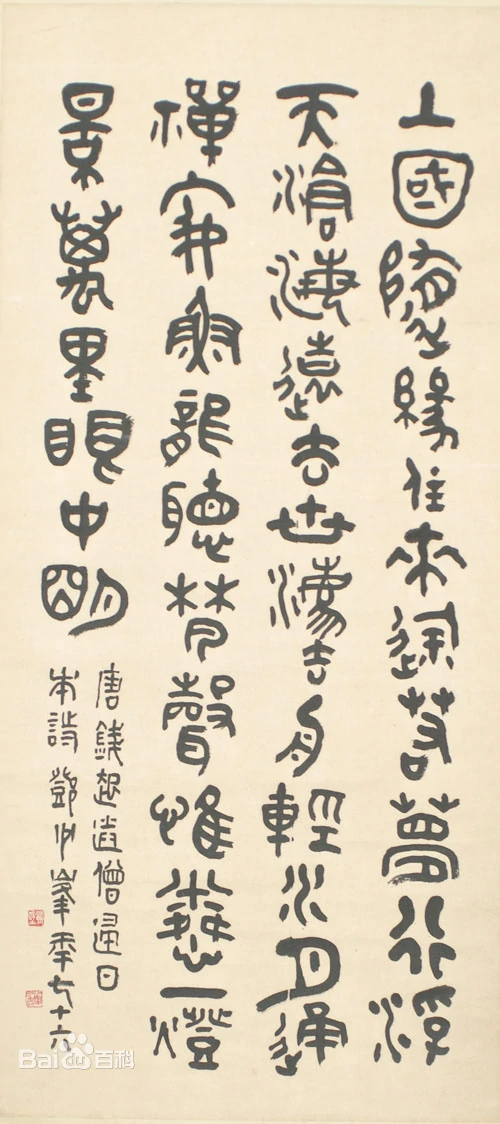 上國隨緣住來途若夢行浮
天滄海遠去世灋舟輕水月通
禪寂魚龍聽梵聲惟憐一燈
景萬里眼中明
唐錢起送僧歸日
本詩 鄧少峯年七十六
Bai du 百科